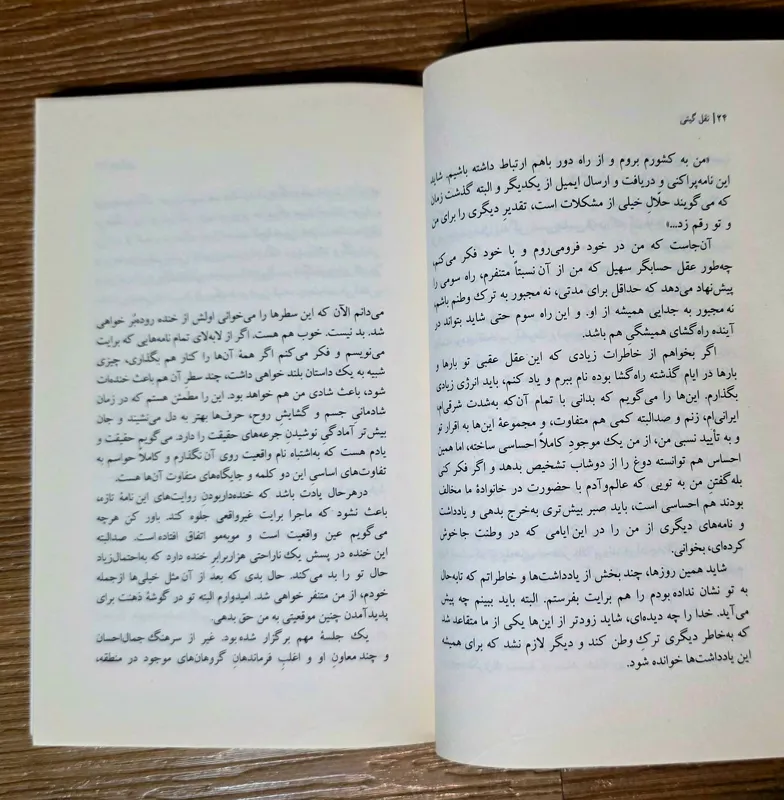 ۲۴ | نقل گیتی
«من به کشورم بروم و از راه دور باهم ارتباط داشته باشیم، شاید
این نامه‌پراکنی و دریافت و ارسال ایمیل از یکدیگر و البته گذشت زمان
که می‌گویند حلّالِ خیلی از مشکلات است، تقدیرِ دیگری را برای من
و تو رقم زد...»
آن‌جاست که من در خود فرومی‌روم و با خود فکر می‌کنم،
چه‌طور عقل حسابگر سهیل که من از آن نسبتاً متنفرم، راه سومی را
پیش‌نهاد می‌دهد که حداقل برای مدتی، نه مجبور به ترک وطنم باشم،
نه مجبور به جدایی همیشه از او. و این راه سوم حتی شاید بتواند در
آینده راه‌گشای همیشگی هم باشد.
اگر بخواهم از خاطرات زیادی که این عقل عقبی تو بارها و
بارها در ایام گذشته راه‌گشا بوده نام ببرم و یاد کنم، باید انرژی زیادی
بگذارم. این‌ها را می‌گویم که بدانی با تمام آن‌که به‌شدت شرقی‌ام،
ایرانی‌ام، زنم و صدالبته کمی هم متفاوت، و مجموعهٔ این‌ها به اقرار تو
و به تأیید نسبی من، از من یک موجودِ کاملاً احساسی ساخته، اما همین
احساس هم توانسته دوغ را از دوشاب تشخیص بدهد و اگر فکر کنی
بله‌گفتنِ من به تویی که عالم‌وآدم با حضورت در خانوادهٔ ما مخالف
بودند هم احساسی است، باید صبر بیش‌تری به‌خرج بدهی و یادداشت
و نامه‌های دیگری از من را در این ایامی که در وطنت جاخوش
کرده‌ای، بخوانی.
شاید همین روزها، چند بخش از یادداشت‌ها و خاطراتم که تابه‌حال
به تو نشان نداده بودم را هم برایت بفرستم. البته باید ببینم چه پیش
می‌آید. خدا را چه دیده‌ای، شاید زودتر از این‌ها یکی از ما متقاعد شد
که به‌خاطر دیگری ترکِ وطن کند و دیگر لازم نشد که برای همیشه
این یادداشت‌ها خوانده شود.
می‌دانم الآن که این سطرها را می‌خوانی اولش از خنده روده‌بُر خواهی
شد. بد نیست. خوب هم هست. اگر از لابه‌لای تمام نامه‌هایی که برایت
می‌نویسم و فکر می‌کنم اگر همهٔ آن‌ها را کنار هم بگذاری، چیزی
شبیه به یک داستان بلند خواهی داشت، چند سطر آن هم باعث خنده‌ات
شود، باعث شادی من هم خواهد بود. این را مطمئن هستم که در زمان
شادمانی جسم و گشایشِ روح، حرف‌ها بهتر به دل می‌نشیند و جان
بیش‌تر آمادگیِ نوشیدنِ جرعه‌های حقیقت را دارد. می‌گویم حقیقت و
یادم هست که به‌اشتباه نام واقعیت روی آن نگذارم و کاملاً حواسم به
تفاوت‌های اساسیِ این دو کلمه و جایگاه‌های متفاوت آن‌ها هست.
درهرحال یادت باشد که خنده‌داربودن روایت‌های این نامهٔ تازه،
باعث نشود که ماجرا برایت غیرواقعی جلوه کند. باور کن هرچه
می‌گویم عین واقعیت است و موبه‌مو اتفاق افتاده است. صدالبته
این خنده در پسش یک ناراحتی هزاربرابرِ خنده دارد که به‌احتمال‌زیاد
حال تو را بد می‌کند. حال بدی که بعد از آن مثل خیلی‌ها ازجمله
خودم، از من متنفر خواهی شد. امیدوارم البته تو در گوشهٔ ذهنت برای
پدیدآمدن چنین موقعیتی به من حق بدهی.
یک جلسهٔ مهم برگزار شده بود. غیر از سرهنگ جمال‌احسان
و چند معاونِ او و اغلبِ فرماندهانِ گروهان‌های موجود در منطقه،